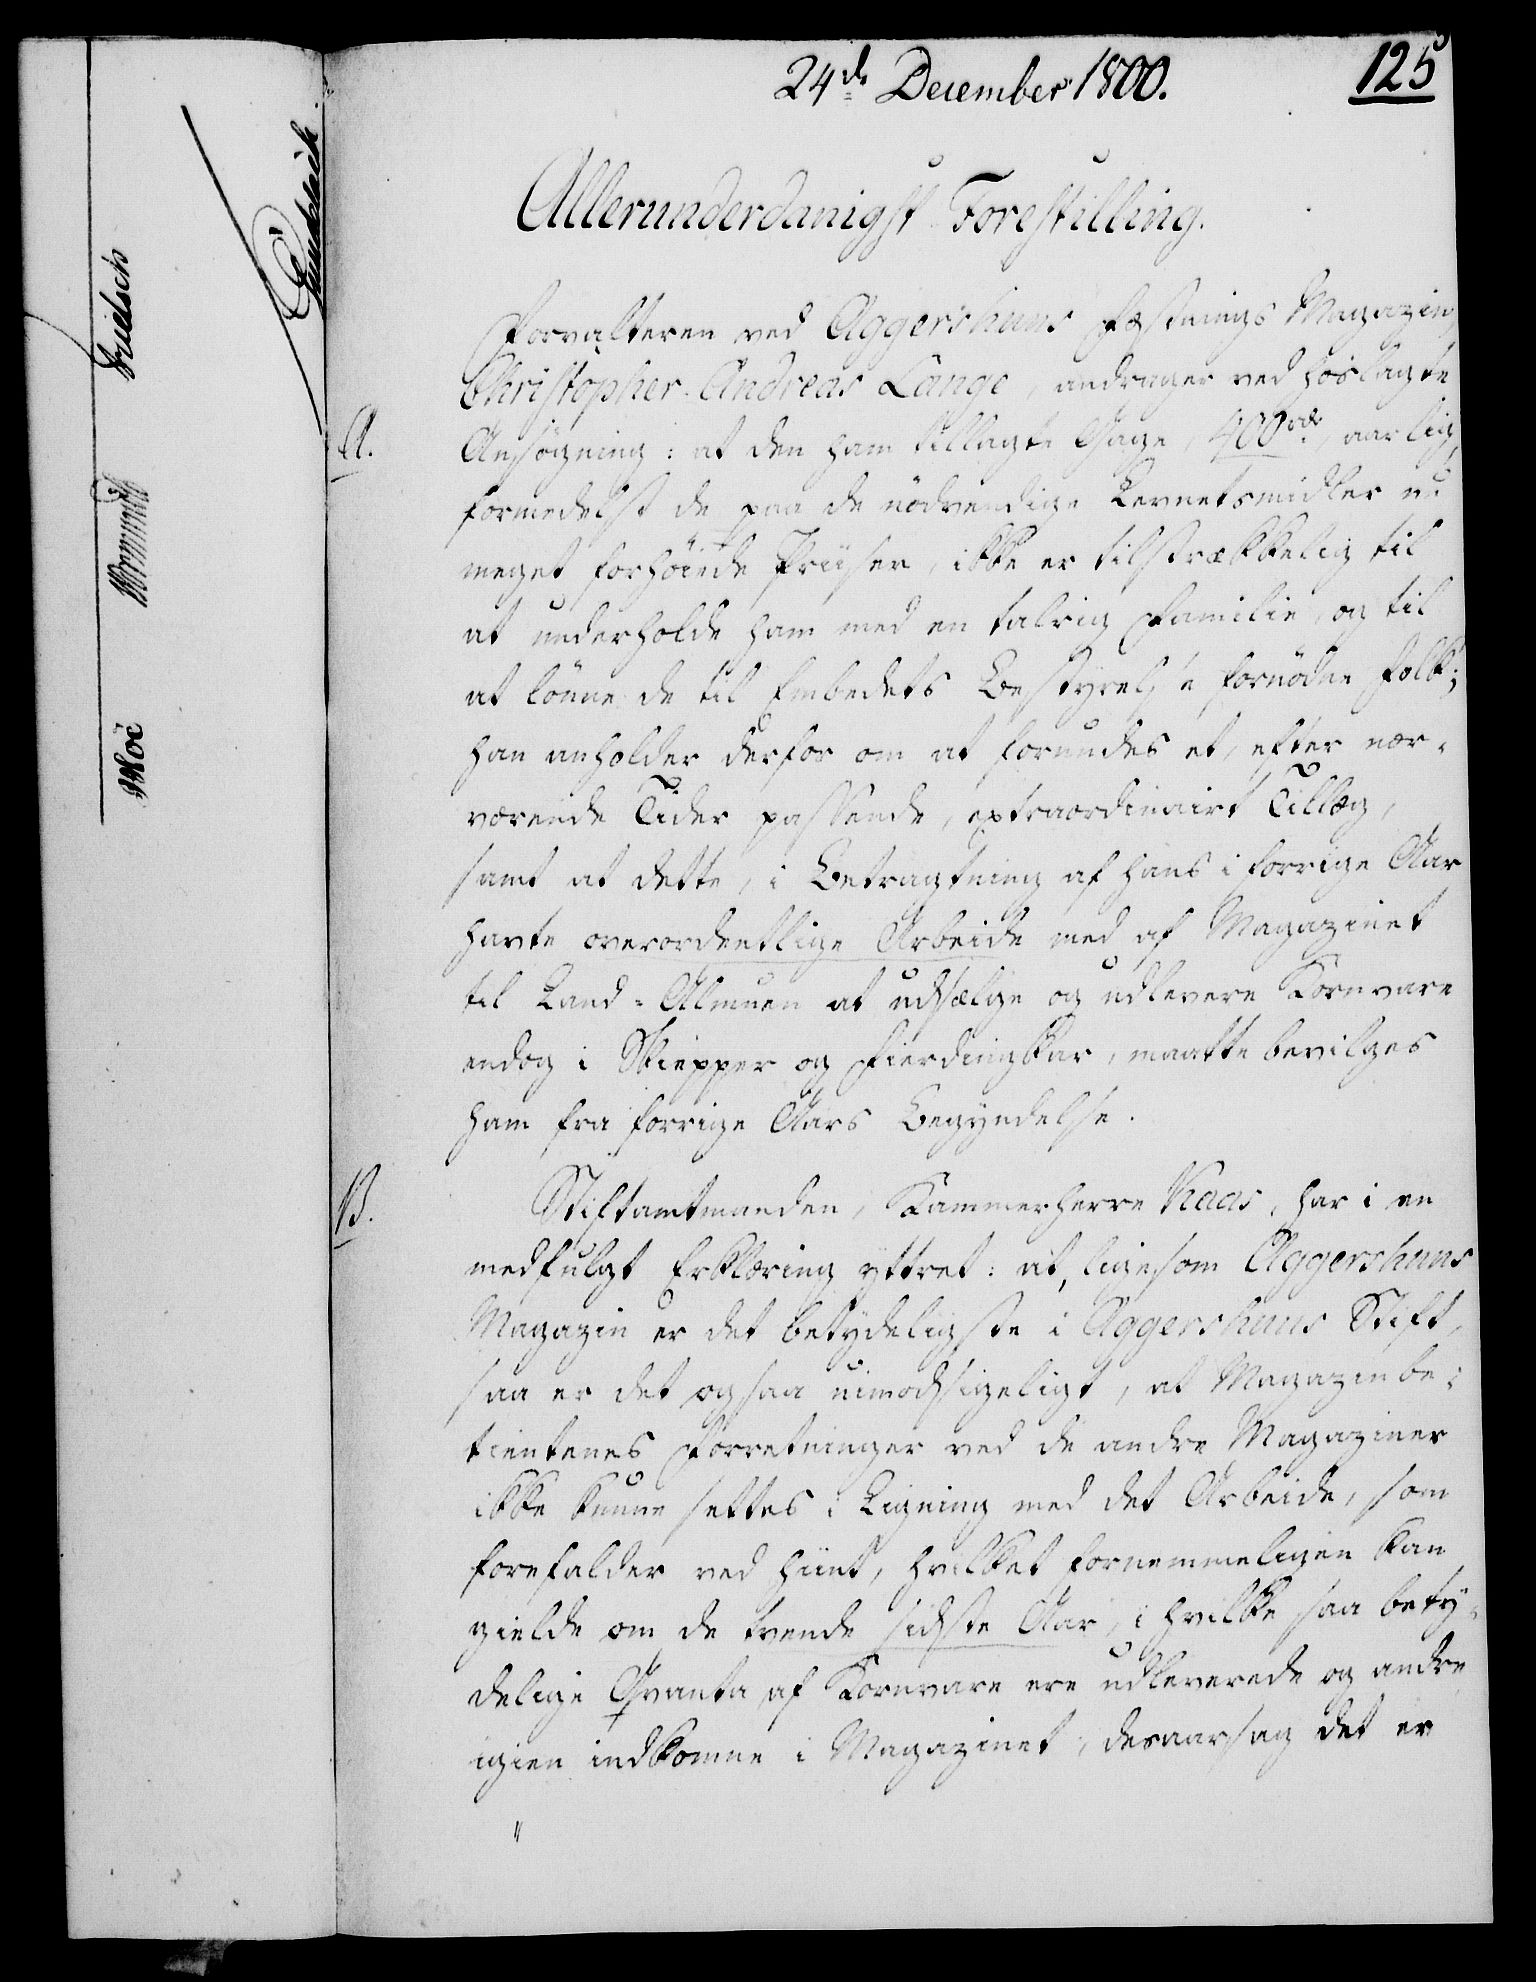 24de December 1800.
125
Allerunderdanigst Forestilling.
Forvalteren ved Aggershuus Fæstnings Magazin
Christopher Andreas Lange, andrager ved hoslagte
A.
Ansøgning: at den ham tillagte Gage, 400rd, aarlig,
formedelst de paa de nödvendige Levnetsmidler nu
meget forhöiede Priiser, ikke er tilstrækkelig til
at underholde ham med en talrig Familie, og til
at lönne de til Embedets Bestyrelse fornödne Folk;
han anholder derfor om at forundes et, efter nær-
værende Tider passende, extraordinairt Tillæg,
samt at dette, i Betragtning af hans i forrige Aar
havte overordentlige Arbeide med af Magazinet
til Land-Almuen at udsælge og udlevere Kornvare
endog i Skiepper og Fierdingkar, maatte bevilges
ham fra forrige Aars Begyndelse.
B.
Stiftamtmanden, Kammerherre Kaas, har i en
medfulgt Erklæring yttret: at, ligesom Aggershuus
Magazin er det betydeligste i Aggershuus Stift,
saa er det ogsaa uimodsigeligt, at Magazinbe-
tientenes Forretninger ved de andre Magaziner
ikke kunne settes i Ligning med det Arbeide, som
forefalder ved hiint, hvilket fornemmeligen kan
gielde om de tvende sidste Aar, i hvilke saa bety-
delige Qvanta af Kornvare ere udleverede og andre
igien indkomne i Magazinet, desaarsag det er
"